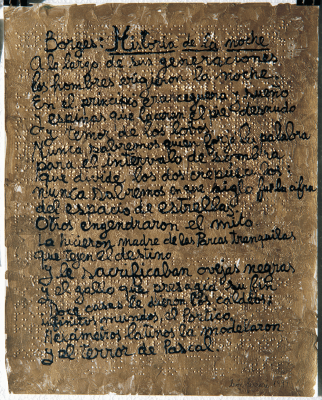 Borges: Historia de la noche
A lo largo de sus generaciones
los hombres erigieron la noche.
En el principio era ceguera y sueño
y espinas que laceran el pie desnudo
y temor de los lobos.
Nunca sabremos quien forjó la palabra
para el intervalo de sombra
que divide los dos crepúsculos;
nunca sabremos en que siglo fue la cifra
del espacio de estrellas.
Otros engendraron el mito
La hicieron madre de las Parcas tranquilas
que tejen el destino
y le sacrificaban ovejas negras
y el gallo que presagia su fin
Doce casas le dieron los caldeos;
infinitos mundos, el Pórtico.
Hexámetros latinos la modelaron
y el terror de Pascal.